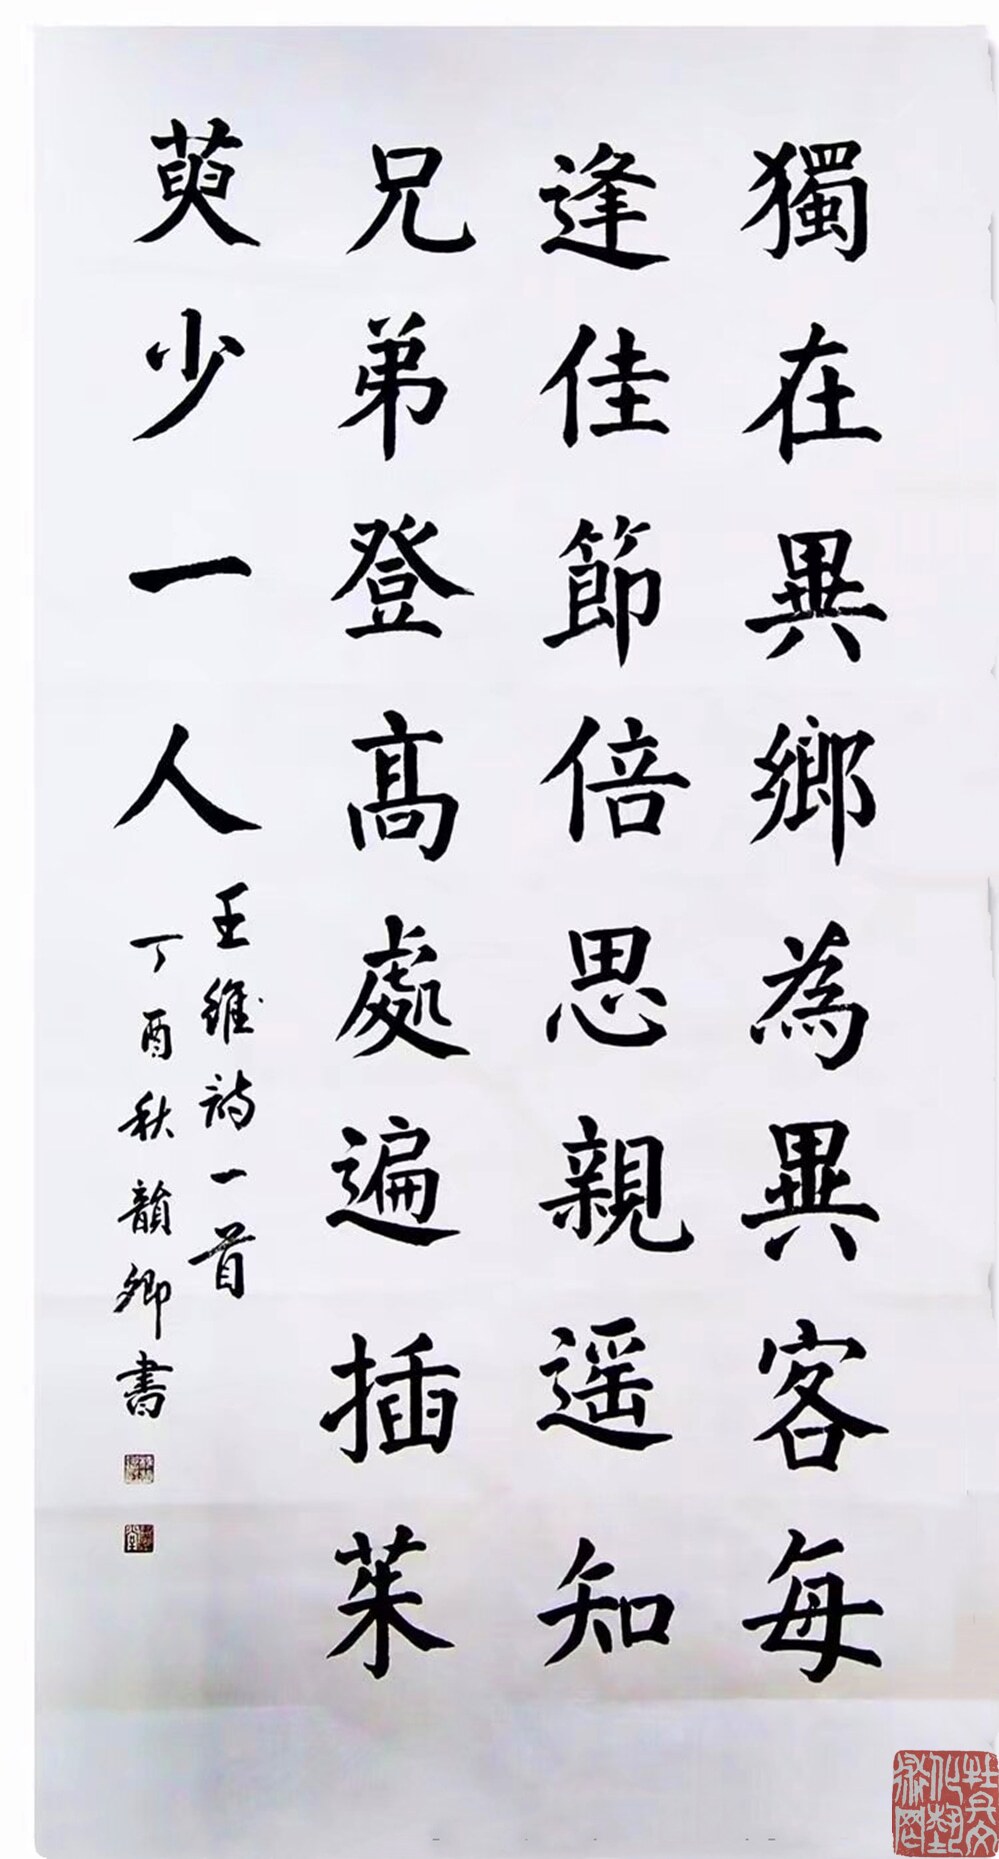 獨在異鄉為異客每
逢佳節倍思親遥知
兄弟登高處遍插茱
萸少一人
王維詩一首
丁酉秋韻卿書